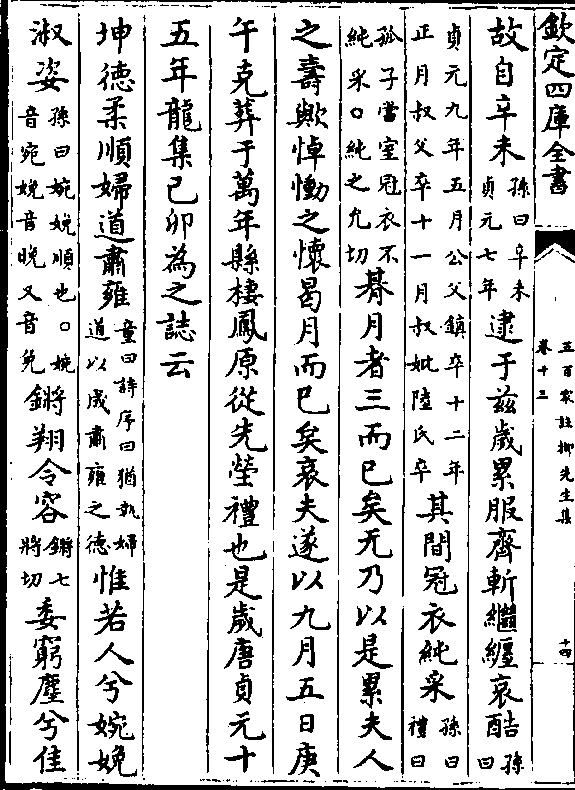 欽定四庫全書
五百家註柳先生集
卷十三
十四
故自辛未孫曰辛未貞元七年逮于茲歲累服齊斬繼纏哀酷孫曰
貞元九年五月公父鎮卒十二年正月叔父卒十一月叔妣陸氏卒其間冠衣純采孫曰禮曰
孤子當室冠衣不純采○純之允切朞月者三而已矣无乃以是累夫人
之壽歟悼慟之懷曷月而已矣哀夫遂以九月五日庚
午克葬于萬年縣棲鳳原從先塋禮也是歲唐貞元十
五年龍集己卯為之誌云
坤德柔順婦道肅雍童曰詩序曰猶執婦道以成肅雍之德惟若人兮婉娩
淑姿孫曰婉娩順也○婉音宛娩音晚又音免鏘翔令容鏘七將切委窮塵兮佳